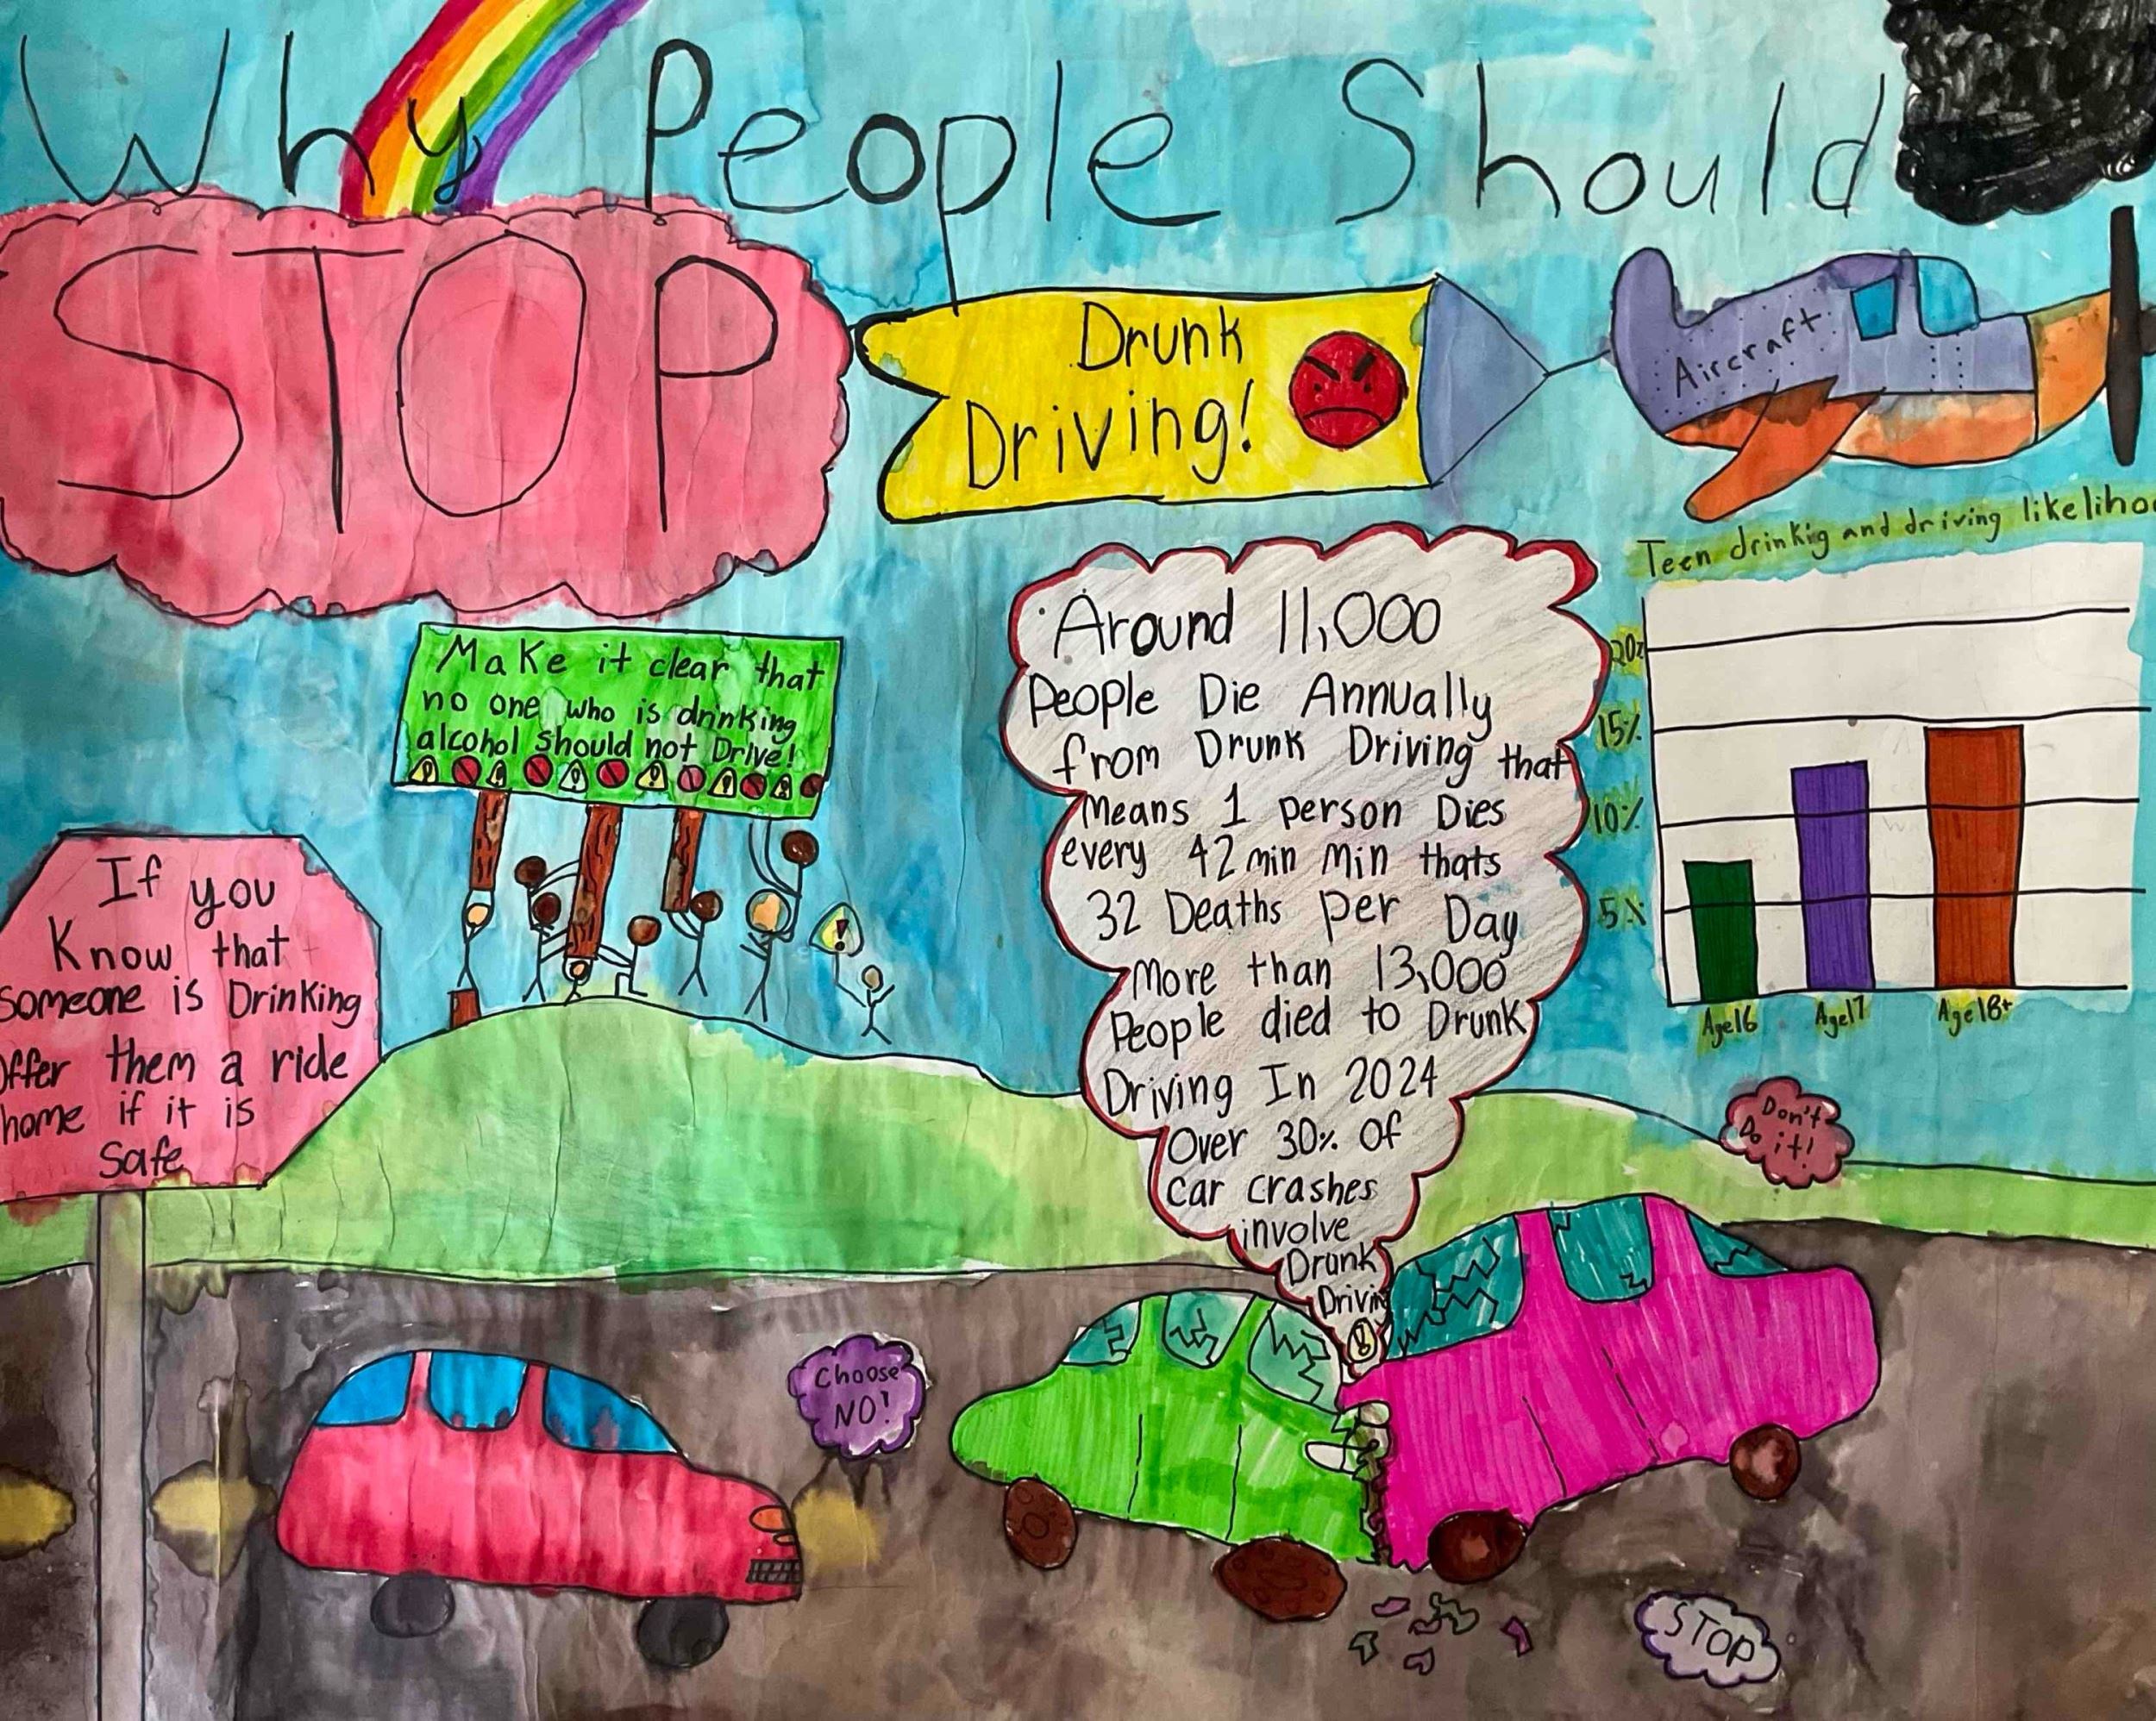 Why People Should
STOP
Drunk
Driving!
Aircraft
Teen drinkig and driving likelihoo
20%
15%
10%
5%
Age16 Age17 Age18+
Make it clear that
no one who is drinking
alcohol should not Drive!
If you
Know that
Someone is Drinking
Offer them a ride
home if it is
Safe
Around 11,000
People Die Annually
from Drunk Driving that
Means 1 person Dies
every 42 min Min thats
32 Deaths Per Day
More than 13,000
People died to Drunk
Driving In 2024
Over 30% Of
car crashes
involve
Drunk
Drivin
Don't
Do it!
Choose
NO!
STOP